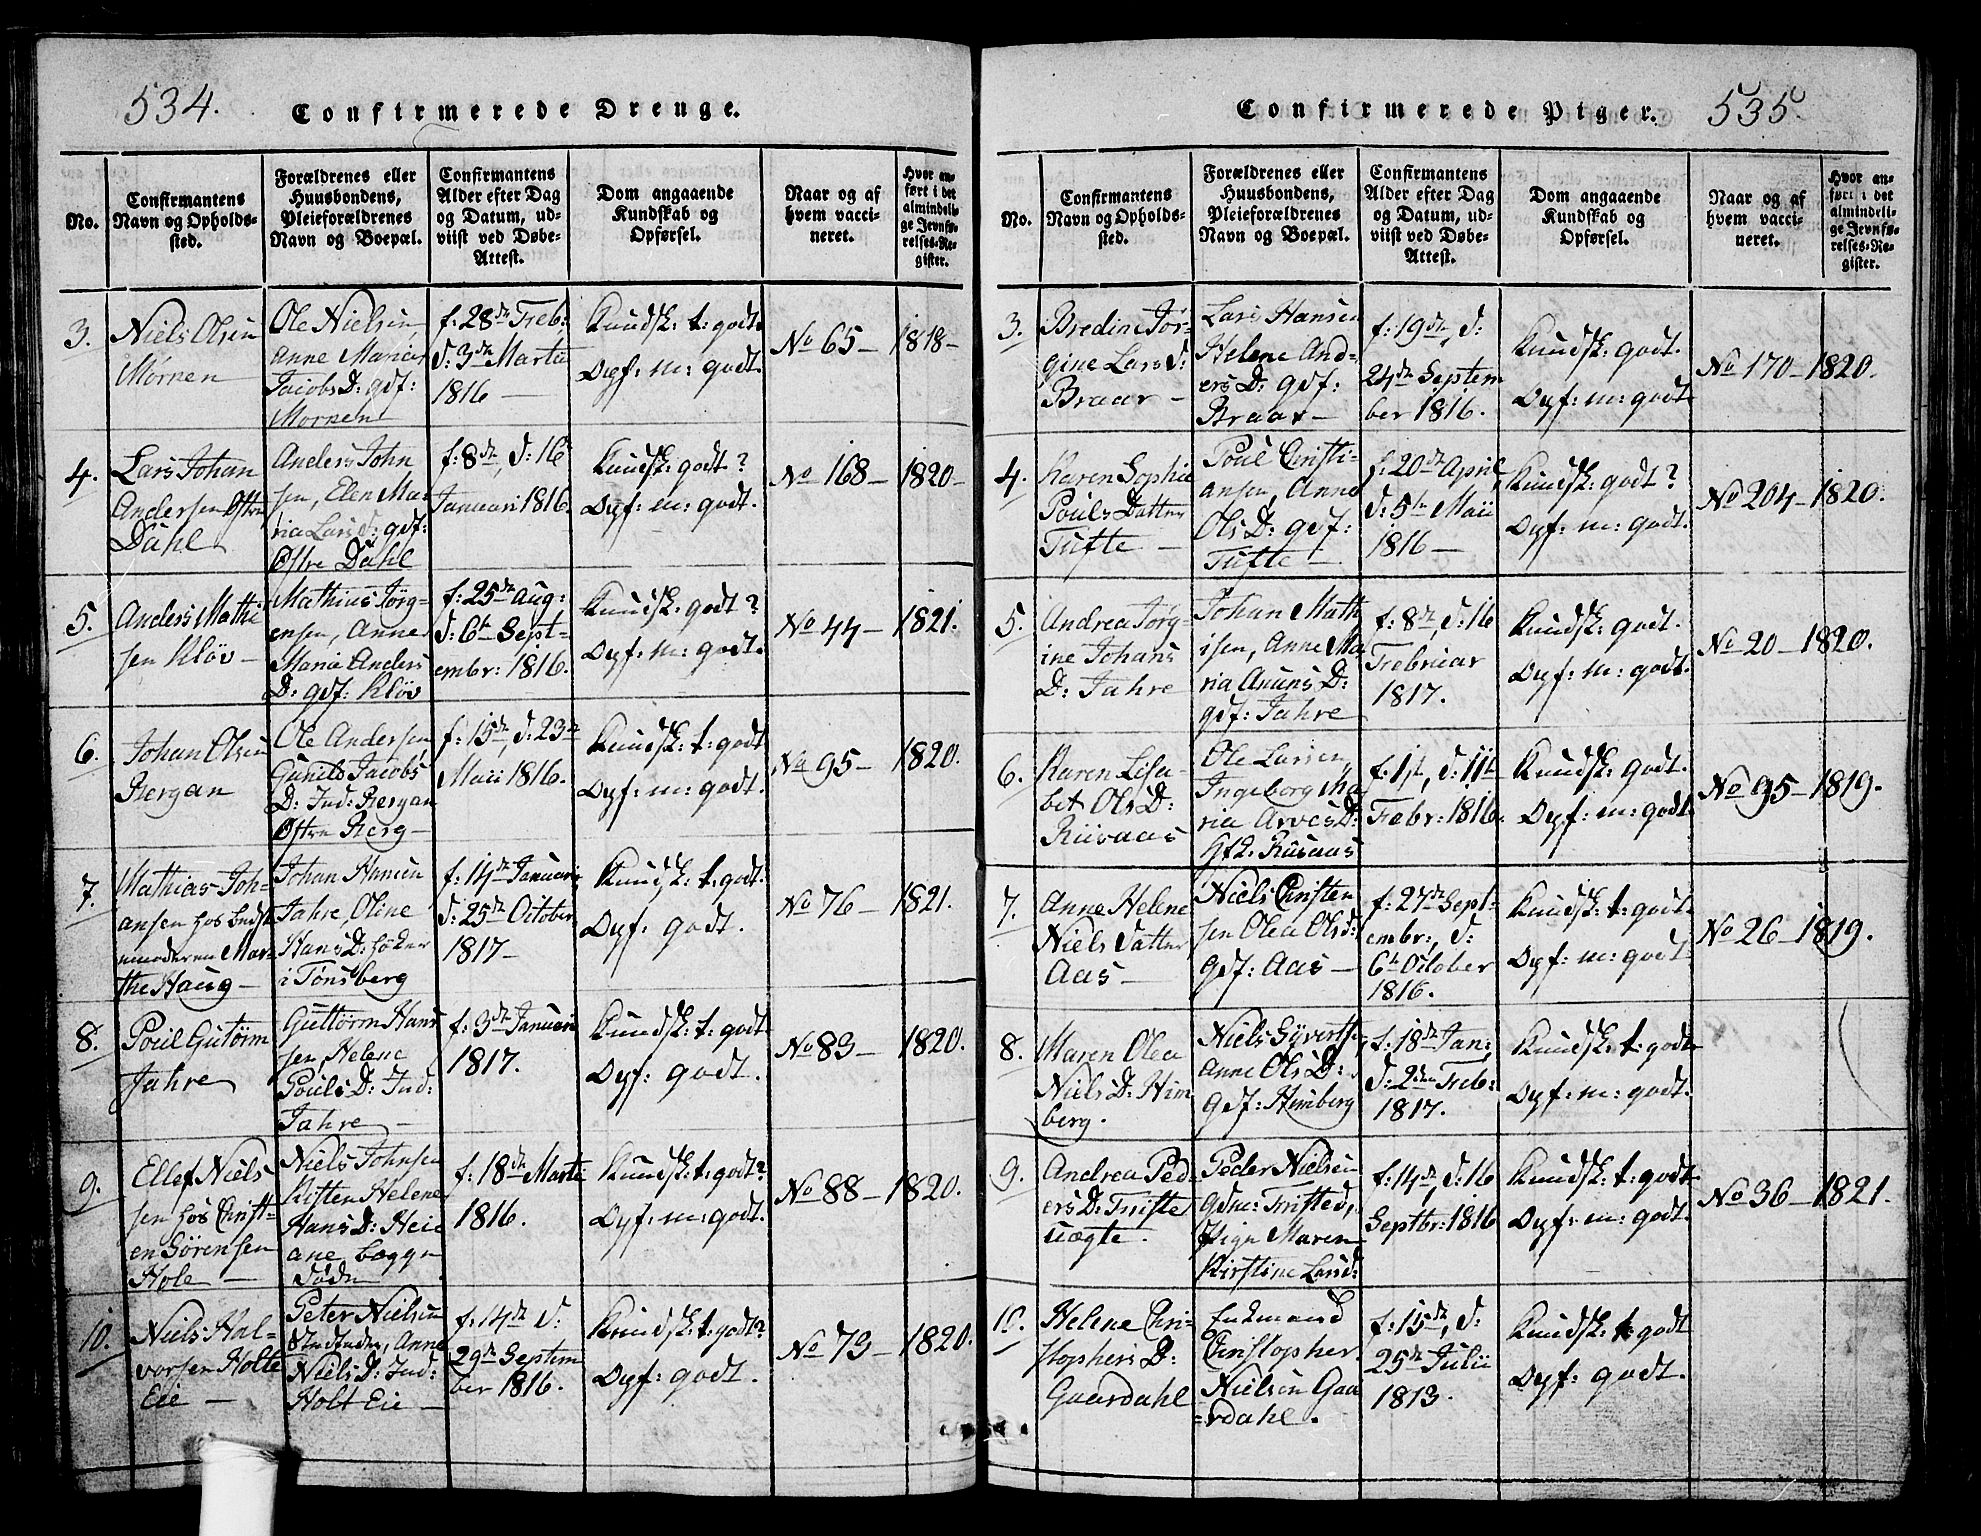 534.
Confirmerede Drenge.
No.
Confirmantens
Navn og Opholds-
sted.
Forældrenes eller
Huusbondens,
Pleieforældrenes
Navn og Boepæl.
Confirmantens
Alder efter Dag
og Datum, ud-
viist ved Døbe-
Attest.
Dom angaaende
Kundskab og
Opførsel.
Naar og af
hvem vacci-
neret.
Hvor an-
ført i det
almindeli-
ge Jevnfø-
relses-Re-
gister.
3.
Niels Olsen
Mørnen
Ole Nielsen
Anne Maria
Jacobs D: gdf:
Mornen
f: 28de Febr:
d: 3de Martii
1816 —
Kundsk: t: godt.
Opf: m: godt.
No 65 —
1818 —
4.
Lars Johan
Andersen Østre
Dahl
Anders John
sen, Elen Ma-
ria Larsd: gdf:
Østre Dahl
f: 8de, d: 16
Januari 1816.
Kundsk: godt?
Opf: m: godt.
No 168 —
1820 —
5.
Anders Mathi
sen Kløv —
Mathias Jørg-
ensen, Anne
Maria Anders
D: gdf: Kløv
f: 25de Aug:
d: 6te Sept-
embr: 1816.
Kundsk: godt?
Opf: m: godt.
No 44 —
1821.
6.
Johan Olsen
Bergan
Ole Andersen,
Gunild Jacobs
D: Ind: Bergan
Østre Berg —
f: 15de d: 23de
Maii 1816.
Kundsk: t: godt
Opf: m: godt.
No 95 —
1820.
7.
Mathias Joh-
ansen hos Bedste
moderen Mar-
the Haug —
Johan Hansen
Jahre, Oline
Hans D: Høker
i Tønsberg
f: 14de Januari,
d: 25de October
1817 —
Kundsk: t: godt.
Opf: godt.
No 76 —
1821.
8.
Poul Gutørm
Jahre
Guttorm Hans
sen Helene
Pouls D: Ind:
Jahre —
f: 3de Januari
1817.
Kundsk: t: godt
Opf: godt.
No 83 —
1820.
9.
Ellef Niels
sen hos Christ-
en Sörensen
Hole —
Niels Johnsen
Kisten Helene
Hans D: Heie
ane begge
døde
f: 18de Martii
1816.
Kundsk: t: godt?
Opf: m: godt.
No 88 —
1820.
10.
Niels Hal-
vorsen Holte
Eie —
Peter Nielsen
Anne
Niels D: Ind:
Holt Eie —
f: 14de d:
29de Septem
ber 1816.
Kundsk: t: godt?
Opf: godt.
No 73 —
1820.
Confirmerede Piger.
535.
No.
Confirmantens
Navn og Opholds-
sted.
Forældrenes eller
Huusbondens,
Pleieforældrenes
Navn og Boepæl.
Confirmantens
Alder efter Dag
og Datum, ud-
viist ved Døbe-
Attest.
Dom angaaende
Kundskab og
Opførsel.
Naar og af
hvem vacci-
neret.
Hvor an-
ført i det
almindeli-
ge Jevnfø-
relses-Re-
gister.
3.
Bredine Jør-
gine Lars d:
Braar —
Lars Hansen
Helene And-
ers D: gdf:
Braar —
f: 19de, d:
24de Septem
ber 1816.
Kundsk: godt.
Opf: m: godt
No 170 —
1820.
4.
Karen Sophie
Pouls Datter
Tufte —
Poul Christi-
ansen, Anne
Ols D: gdf:
Tufte —
f: 20de April,
d: 5te Maii
1816 —
Kundsk: godt?
Opf: m: godt.
No 204 —
1820.
5.
Andrea Jørg-
ine Johans
D: Jahre
Johan Math
isen, Anne Ma
ria Anuns D:
gdf: Jahre
f: 8de, d: 16
Februar
1817.
Kundsk: godt.
Opf: m: godt.
No 20 —
1820.
6.
Karen Lisa-
bet Ols D:
Rusaas
Ole Larsen,
Ingeborg Ma
ria Arves D:
Gf2: Rusaas
f: 1st, d: 11te
Febr: 1816.
Kundsk: godt.
Opf: m: godt.
No 95 —
1819.
7.
Anne Helene
Niels Datter
Aas —
Niels Christen
sen Olea Ols d:
gdf: Aas —
f: 27de Sept-
embr:, d:
6te October
1816.
Kundsk: t: godt.
Opf: m: godt.
No 26 —
1819.
8.
Maren Olea
Niels D: Him
berg.
Niels Syverts,
Anne Ols D:
gdf: Himberg
f: 18de Jan:
d: 2den Feb:
1817.
Kundsk: t: godt
Opf: m: godt.
9.
Andrea Ped-
ers D:
Peder Nielsen
Maren
Kirstine Larsd:
f: 14de, d: 16
Septbr: 1816
Kundsk: t: godt
Opf: m: godt.
No 36 —
1821.
10.
Helene Chri-
stophers D:
Gaardahl
Enkemand
Christopher
Nielsen Gaa
-rdahl.
f: 15de, d:
25de Julii
1813.
Kundsk: t: godt
Opf: godt.